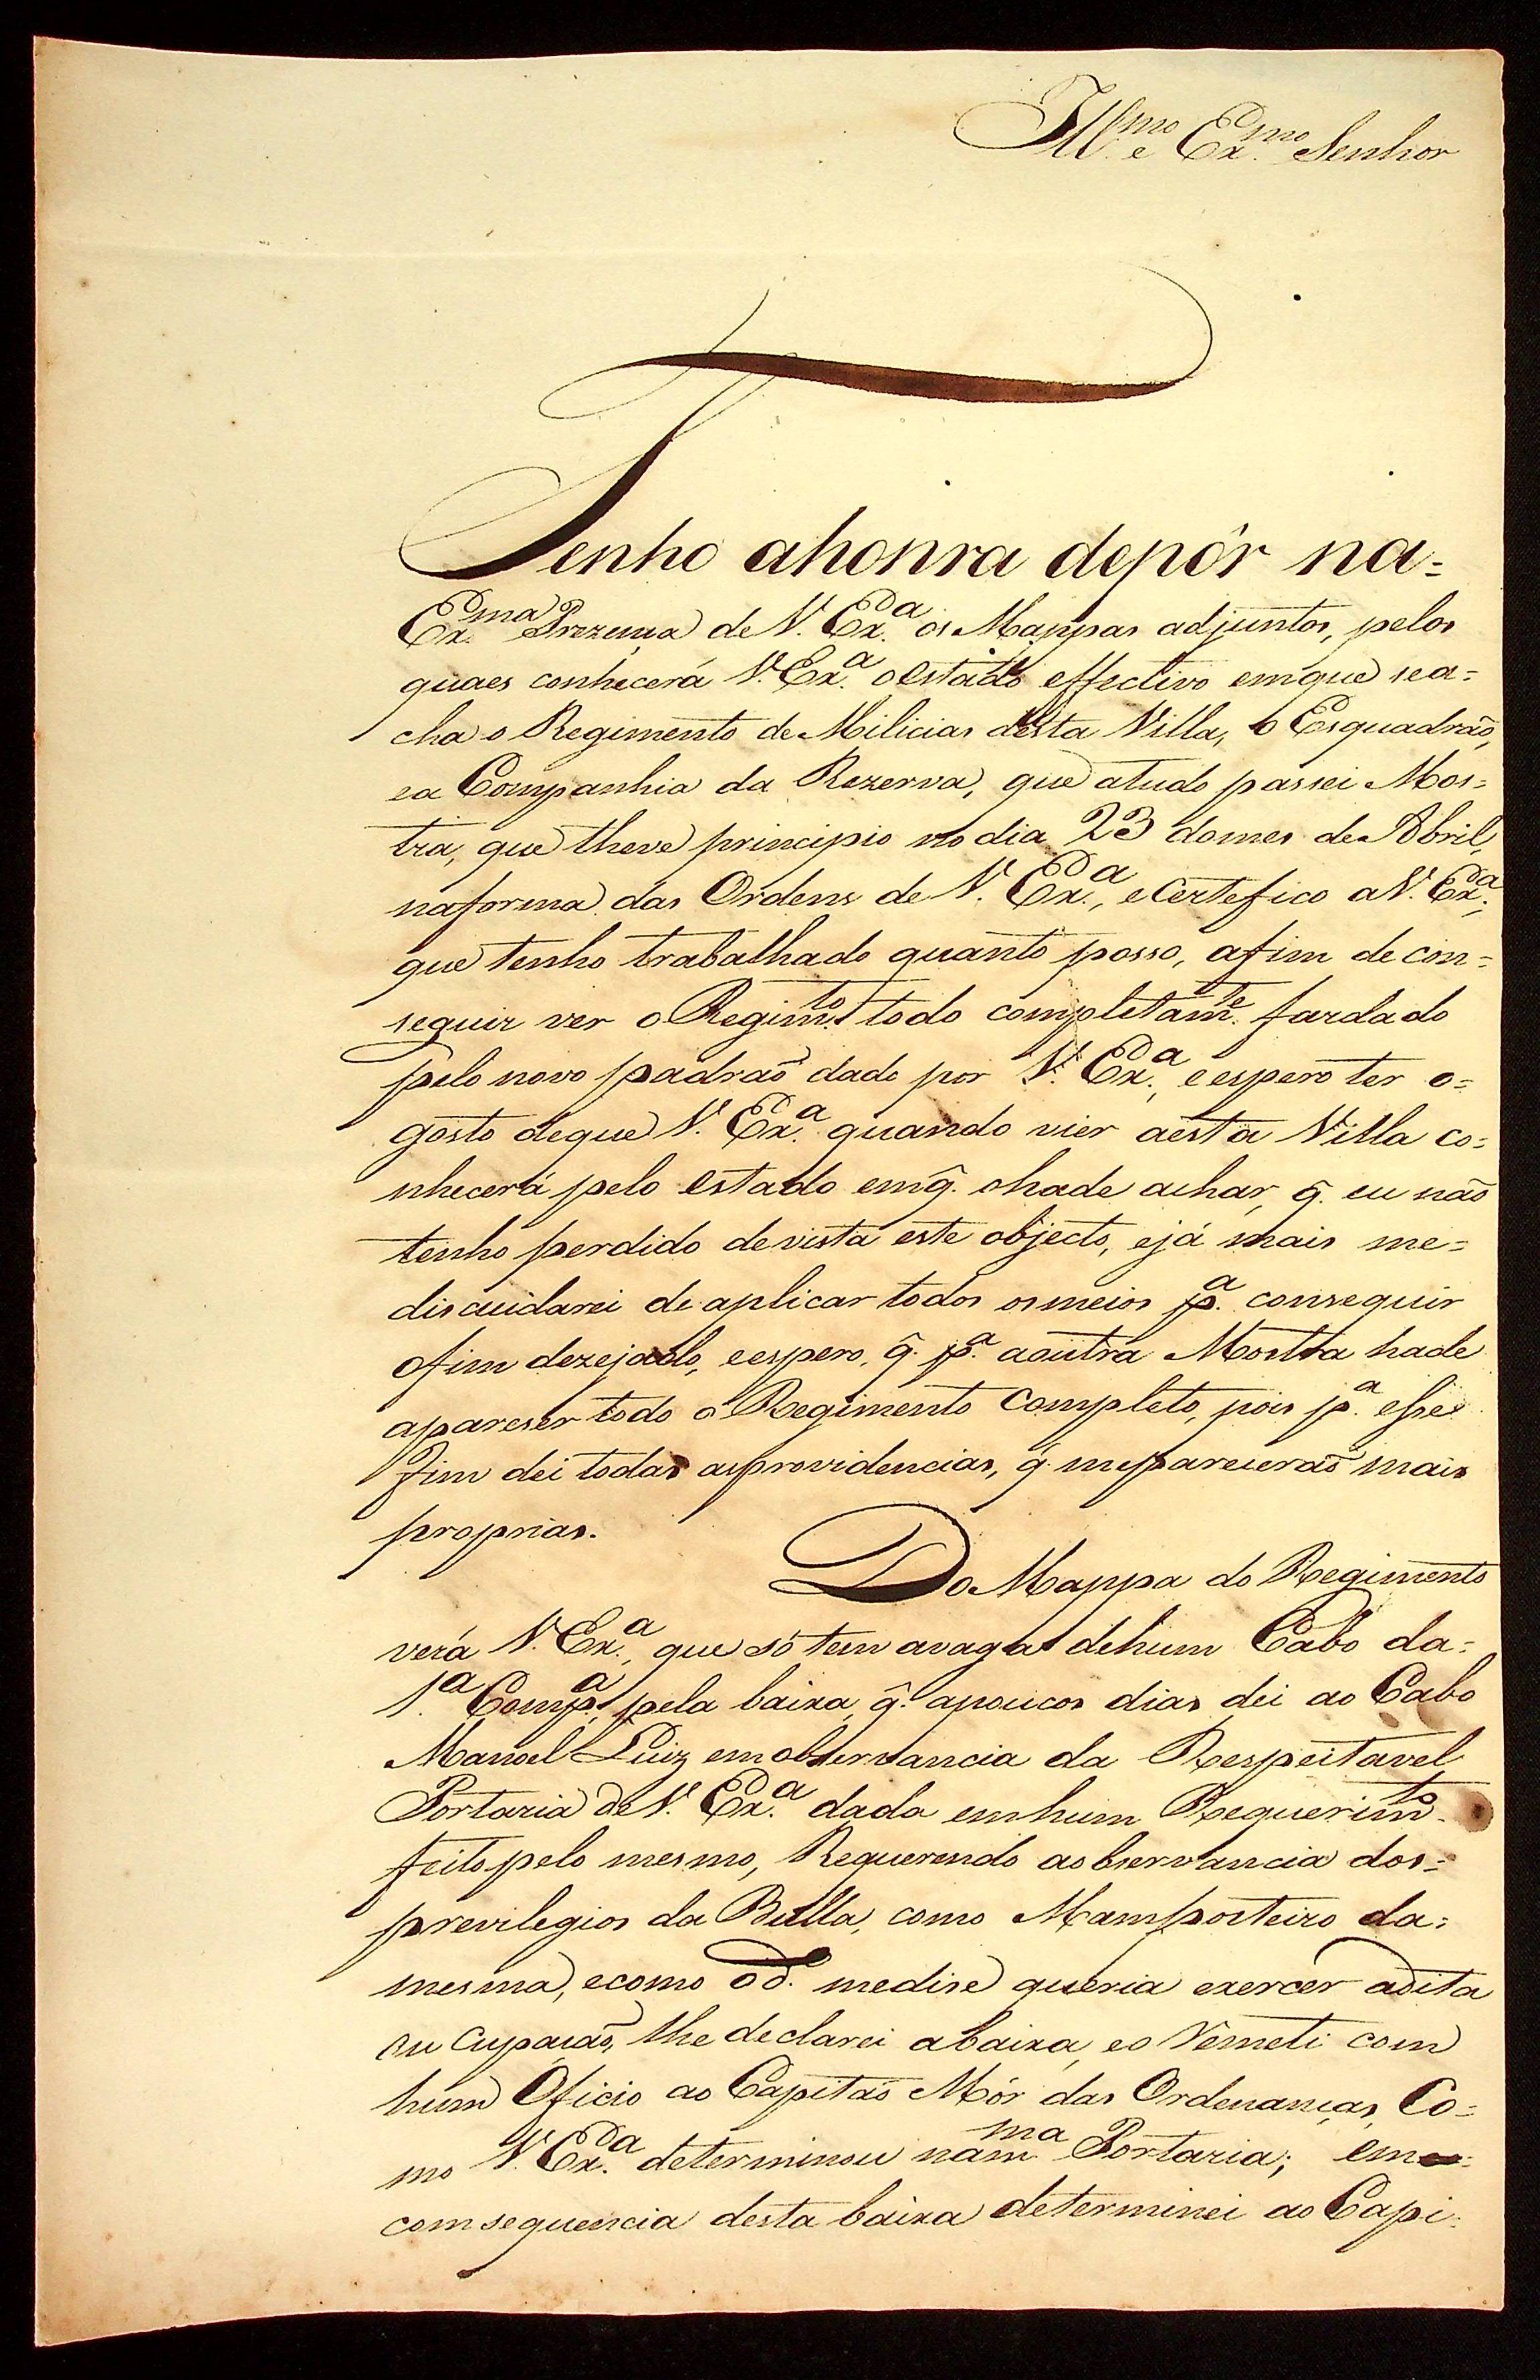 Ill.mo e Ex.mo Senhor
Tenho ahonra depôr na=
Ex.ma Prezença de V. Ex.a os Mappas adjuntos, pelos
quaes conhecerá V. Ex.a oestado effectivo emque sea=
cha o Regimento de Milicias desta Villa, o Esquadraõ,
ea Companhia da Rezerva, que atudo passei Mos=
tra, que theve principio no dia 23 domes de Abril,
naforma das Ordens de V. Ex.a, eCertefico aV. Ex.a,
que tenho trabalhado quanto posso, afim de con=
seguir ver o Regim.to todo completam.te fardado
pelo novo padraõ dado por V. Ex.a, eespero ter o=
gosto deque V. Ex.a quando vier aesta Villa co=
nhecerá pelo estado emq̃. ohade achar, q̃. eu naõ
tenho perdido devista este objecto, ejá mais me=
discuidarei de aplicar todos osmeios p.a conseguir
ofim dezejado, eespero, q̃. p.a aoutra Mostra hade
apareser todo o Regimento Completo, pois p.a esse
fim dei todas asprovidencias, q̃. mepareceraõ mais
proprias.
Do Mappa do Regimento
verá V. Ex.a, que só tem avaga dehum Cabo da=
1.a Comp.a, pela baixa, q̃. apoucos dias dei ao Cabo
Manoel Luiz emobservancia da Respeitavel
Portaria de V. Ex.a dada emhum Requerim.to
feito pelo mesmo, Requerendo aobservancia dos=
previlegios da Bulla, como Mamposteiro da=
mesma, ecomo od.o medise queria exercer adita
ou cupaçaõ, lhe declarei abaixa, eo Remeti com
hum Oficio ao Capitaõ Mór das Ordenanças, Co=
mo V. Ex.a determinou nam.ma Portaria; em=
comsequencia desta baixa determinei ao Capi=